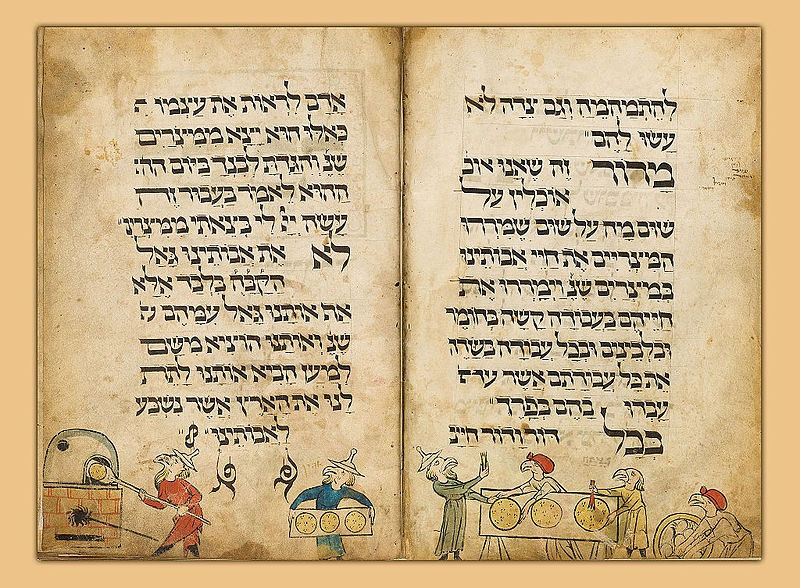 להתמהמה וגם צדה לא
עשו להם
מרור זה שאנו אוכ
אוכלין על
שום מה על שום שמררו
המצריים את חיי אבותינו
במצרים שנ וימררו את
חייהם בעבודה קשה בחומר
ובלבנים ובכל עבודה בשדה
את כל עבודתם אשר
עבדו בהם בפרך
בכל דור ודור חייב
אדם לראות את עצמו
כאלו הוא יצא ממצרים
שנ והגדת לבנך ביום הה
ההוא לאמר בעבור זה
עשה לי בצאתי ממצרים
לא את אבותינו גאל
הקבה בלבד אלא
את אותנו גאל עמהם
שנ ואותנו הוציא משם
למען הביא אותנו לתת
לנו את הארץ אשר נשבע
לאבותינו